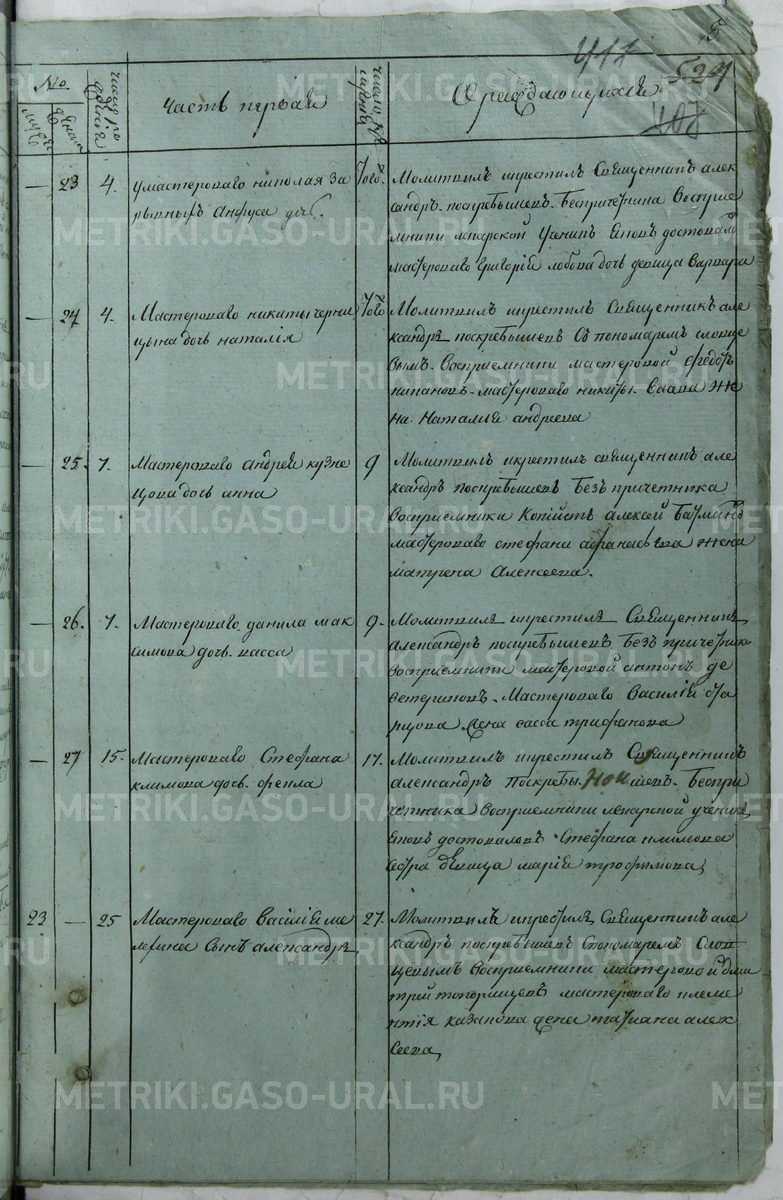 411
529
407
No.
мужеск
женск
число рождения
число крещения
Часть первая
О рождающихся
— 23 4. у мастероваго николая За
рывныхъ Анфуса дочь.
Того.
Молитвилъ икрестилъ Священникъ алек
сандръ поскребышевъ безпричетника Восприе
мники лекарской Ученикъ Яковъ достоваловъ
мастероваго Григория лобова дочь девица Варвара
— 24 4. Мастероваго никиты черни
цына дочь наталiя
Того
Молитвилъ икрестилъ Священникъ але
ксандръ поскребышевъ Съ пономаремъ словцо
вымъ. Восприемники мастеровой федотъ
никоновъ. мастероваго никиты. Саава же
на. Наталья андреева
— 25. 7. Мастероваго андрея кузне
цова дочь анна
9
Молитвилъ икрестилъ священникъ але
ксандръ поскребышевъ Безъ причетника
Восприемники Копiистъ алексей
мастероваго стефана афанасьева жена
матрена Алексеева.
— 26. 7. Мастероваго данила мак
симова дочь. васса
9.
Молитвилъ икрестилъ Священникъ
александръ поскребышевъ Безъ причетника
восприемники мастеровой антонъ де
ветериковъ. Мастероваго Василiя ста
рцова жена васса трифанова
— 27 15. Мастероваго Стефана
климова дочь. фекла
17.
Молитвилъ икрестилъ Священникъ
александръ Поскребышевъ. Беспри
четника Восприемники лекарской ученикъ
яковъ достоваловъ Стефана климова
сестра девица марiя трофимова
23 — 25 Мастероваго Василiя ме
сынъ александръ
27.
Молитвилъ икрестилъ Священникъ але
ксандръ поскребышевъ Спономаремъ Слов
цовымъ Восприемники мастеровой дми
трей топорищевъ мастероваго клеме
нтiя казакова жена татиана алек
сеева
METRIKI.GASO-URAL.RU